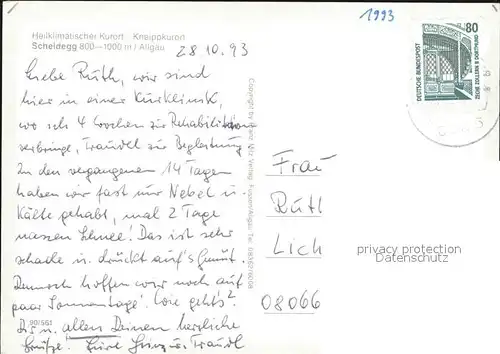 1993
Heilklimatischer Kurort Kneippkurort
Scheidegg 800—1000 m / Allgäu
28.10.93
Liebe Ruth, wir sind
hier in einer Kurklinik,
wo ich 4 Wochen zur Rehabilitation
verbringe, Traudl zur Begleitung
In den vergangenen 14 Tagen
haben wir fast nur Nebel u.
Kälte gehabt, mal 2 Tage
nassen Schnee! Das ist sehr
schade u. drückt auf's Gemüt.
Dennoch hoffen wir noch auf
paar Sonnentage! Wie geht's?
Dir u. allen Deinen herzliche
Grüße! Eure Heinz u. Traudl
90/561
Copyright by Franz Verlag
DEUTSCHE BUNDESPOST
80
ZECHE ZOLLERN II DORTMUND
Frau
Lich
08066
privacy protection
Datenschutz